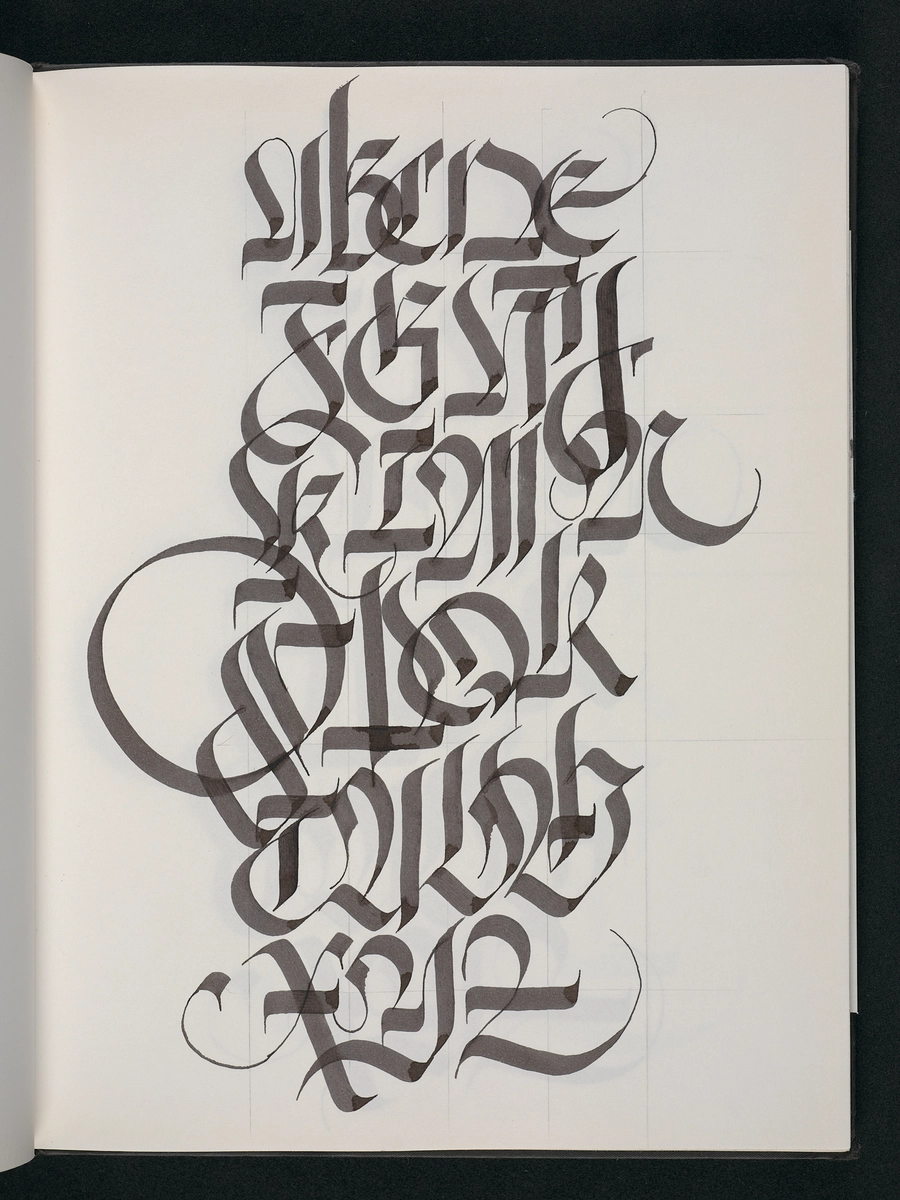 ABCDE
FGHIJ
KLMN
OPQR
STUVW
XYZ